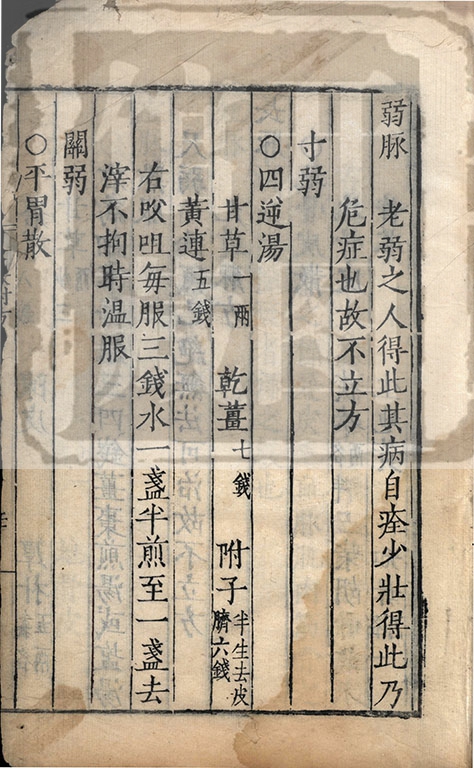 弱脉　老弱之人得此其病自痊少壯得此乃
危症也故不立方
寸弱
○四逆湯
甘草一兩　乾薑七錢　附子半生去皮臍六錢
黃連五錢
右㕮咀每服三錢水一盞半煎至一盞去
滓不拘時温服
關弱
○平胃散